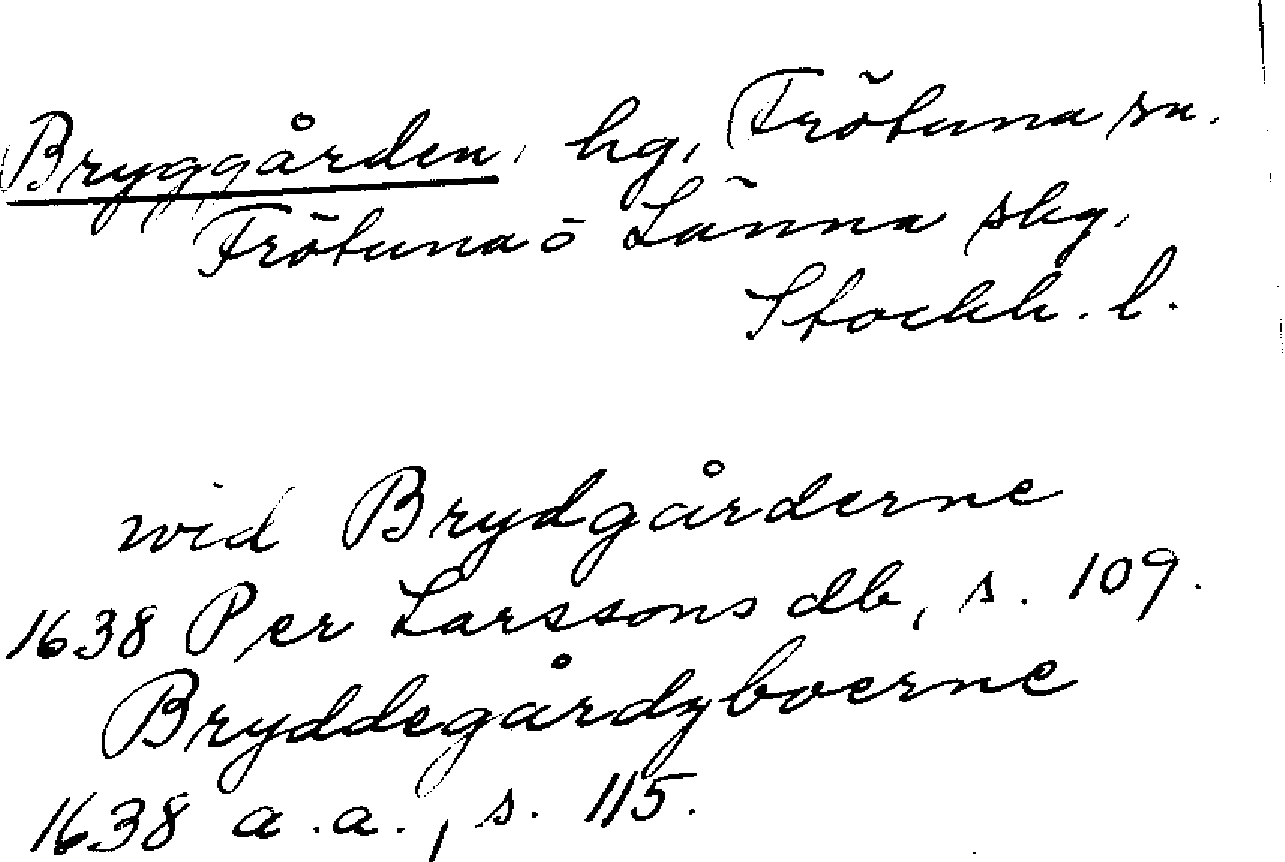 Bryggården, hg, Frötuna sn.
Frötuna o Länna skg.
Stockh. l.
wid Brydgårderne
1638 Per Larssons db, s. 109.
Bryddegårdzboerne
1638 a.a., s. 115.